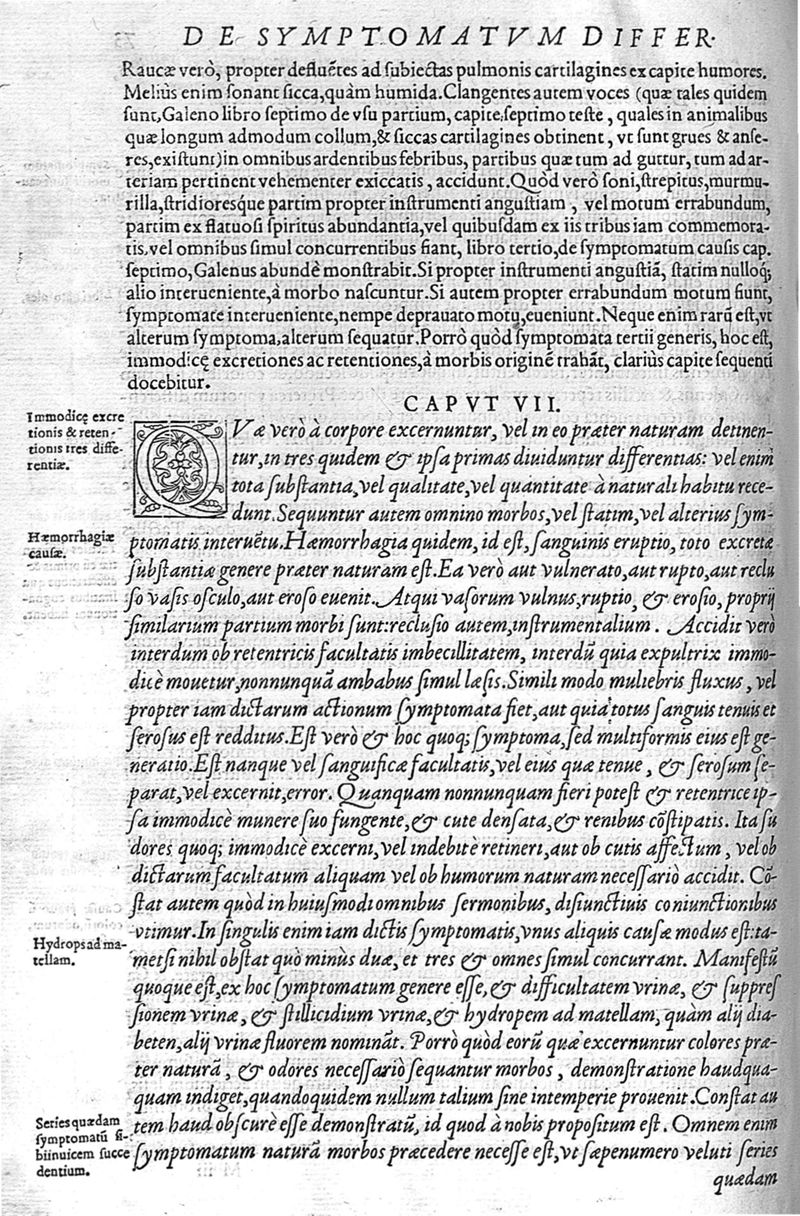 DE SYMPTOMATVM DIFFER.
Raucæ verò, propter defluẽtes ad subiectas pulmonis cartilagines ex capite humores.
Meliùs enim sonant sicca, quàm humida. Clangentes autem voces (quæ tales quidem
sunt, Galeno libro septimo de vsu partium, capite, septimo teste, quales in animalibus
quæ longum admodum collum, & siccas cartilagines obtinent, vt sunt grues & anse-
res, existunt) in omnibus ardentibus febribus, partibus quæ tum ad guttur, tum ad ar-
teriam pertinent vehementer exiccatis, accidunt. Quòd verò soni, strepitus, murmu-
rilla, stridioresque partim propter instrumenti angustiam, vel motum errabundum,
partim ex flatuosi spiritus abundantia, vel quibusdam ex iis tribus iam commemora-
tis, vel omnibus simul concurrentibus fiant, libro tertio, de symptomatum causis cap.
septimo, Galenus abundè monstrabit. Si propter instrumenti angustiã, statim nulloq;
alio interueniente, à morbo nascuntur. Si autem propter errabundum motum fiunt,
symptomate interueniente, nempe deprauato motu, eueniunt. Neque enim rarũ est, vt
alterum symptoma, alterum sequatur. Porrò quòd symptomata tertii generis, hoc est,
immodicę excretiones ac retentiones, à morbis originẽ trahãt, clariùs capite sequenti
docebitur.
CAPVT VII.
Immodicę excre
tionis & reten-
tionis tres diffe-
rentiæ.
QVæ verò à corpore excernuntur, vel in eo præter naturam detinen-
tur, in tres quidem & ipsa primas diuiduntur differentias: vel enim
tota substantia, vel qualitate, vel quantitate à naturali habitu rece-
dunt. Sequuntur autem omnino morbos, vel statim, vel alterius sym-
Hæmorrhagiæ
causæ.
ptomatis interuẽtu. Hæmorrhagia quidem, id est, sanguinis eruptio, toto excretæ
substantiæ genere præter naturam est. Ea verò aut vulnerato, aut rupto, aut reclu
so vasis osculo, aut eroso euenit. Atqui vasorum vulnus, ruptio, & erosio, proprij
similarium partium morbi sunt: reclusio autem, instrumentalium. Accidit verò
interdum ob retentricis facultatis imbecillitatem, interdũ quia expultrix immo-
dicè mouetur, nonnunquã ambabus simul læsis. Simili modo muliebris fluxus, vel
propter iam dictarum actionum symptomata fiet, aut quia totus sanguis tenuis et
serosus est redditus. Est verò & hoc quoq; symptoma, sed multiformis eius est ge-
neratio. Est nanque vel sanguificæ facultatis, vel eius quæ tenue, & serosum se-
parat, vel excernit, error. Quanquam nonnunquam fieri potest & retentrice ip-
sa immodicè munere suo fungente, & cute densata, & renibus cõstipatis. Ita su
dores quoq; immodicè excerni, vel indebitè retineri, aut ob cutis affectum, vel ob
dictarum facultatum aliquam vel ob humorum naturam necessariò accidit. Cõ-
stat autem quòd in huiusmodi omnibus sermonibus, disiunctiuis coniunctionibus
vtimur. In singulis enim iam dictis symptomatis, vnus aliquis causæ modus est: ta-
Hydrops ad ma-
tellam.
metsi nihil obstat quò minùs duæ, et tres & omnes simul concurrant. Manifestũ
quoque est, ex hoc symptomatum genere esse, & difficultatem vrinæ, & suppres
sionem vrinæ, & stillicidium vrinæ, & hydropem ad matellam, quàm alij dia-
beten, alij vrinæ fluorem nominãt. Porrò quòd eorũ quæ excernuntur colores præ-
ter naturã, & odores necessariò sequantur morbos, demonstratione haudqua-
quam indiget, quandoquidem nullum talium sine intemperie prouenit. Constat au
Series quædam
symptomatũ si-
bi inuicem succe
dentium.
tem haud obscurè esse demonstratũ, id quod à nobis propositum est. Omnem enim
symptomatum naturã morbos præcedere necesse est, vt sæpenumero veluti series
quædam